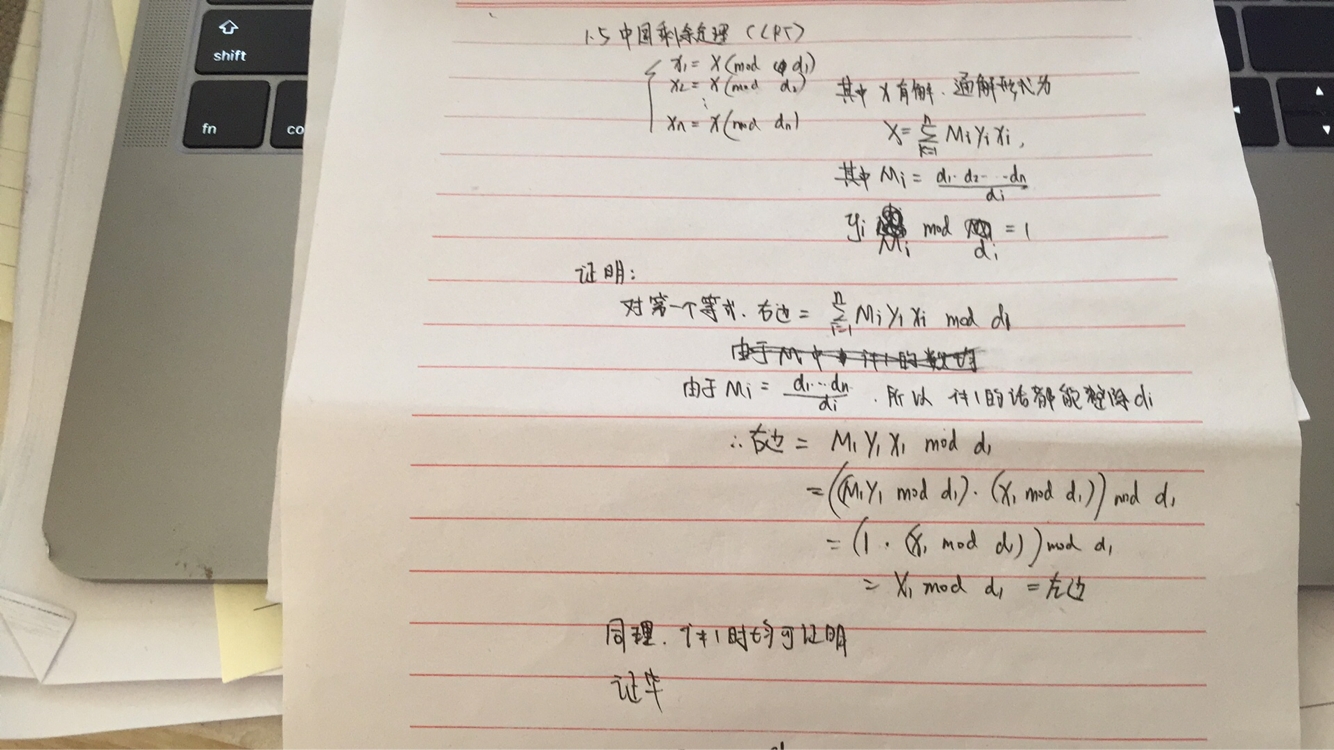 shift
fn
co
1.5 中国剩余定理 (CRT)
x₁ = X(mod d₁)
x₂ = X(mod d₂)
⋮
xn = X(mod dn)
其中 X 有解. 通解形式为
X = ∑ⁿₖ₌₁ Mi yi xi,
其中 Mi = d₁·d₂···dn / di
yi Mi mod di = 1
证明:
对第一个等式. 右边 = ∑ⁿᵢ₌₁ Mi yi xi mod d₁
由于 Mi = d₁···dn / di . 所以 i≠1的话都能整除di
∴右边 = M₁ y₁ x₁ mod d₁
= ((M₁y₁ mod d₁)·(x₁ mod d₁)) mod d₁
= (1 · (x₁ mod d₁)) mod d₁
= x₁ mod d₁ = 左边
同理. i≠1时均可证明
证毕